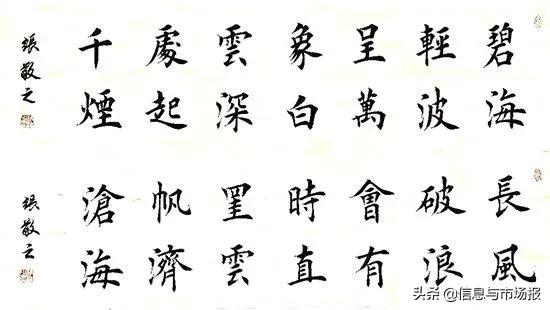 碧海
輕波
呈萬
象白
雲深
處起
千煙
張敬之
長風
破浪
會有
時直
罣雲
帆濟
滄海
張敬之
头条 @信息与市场报